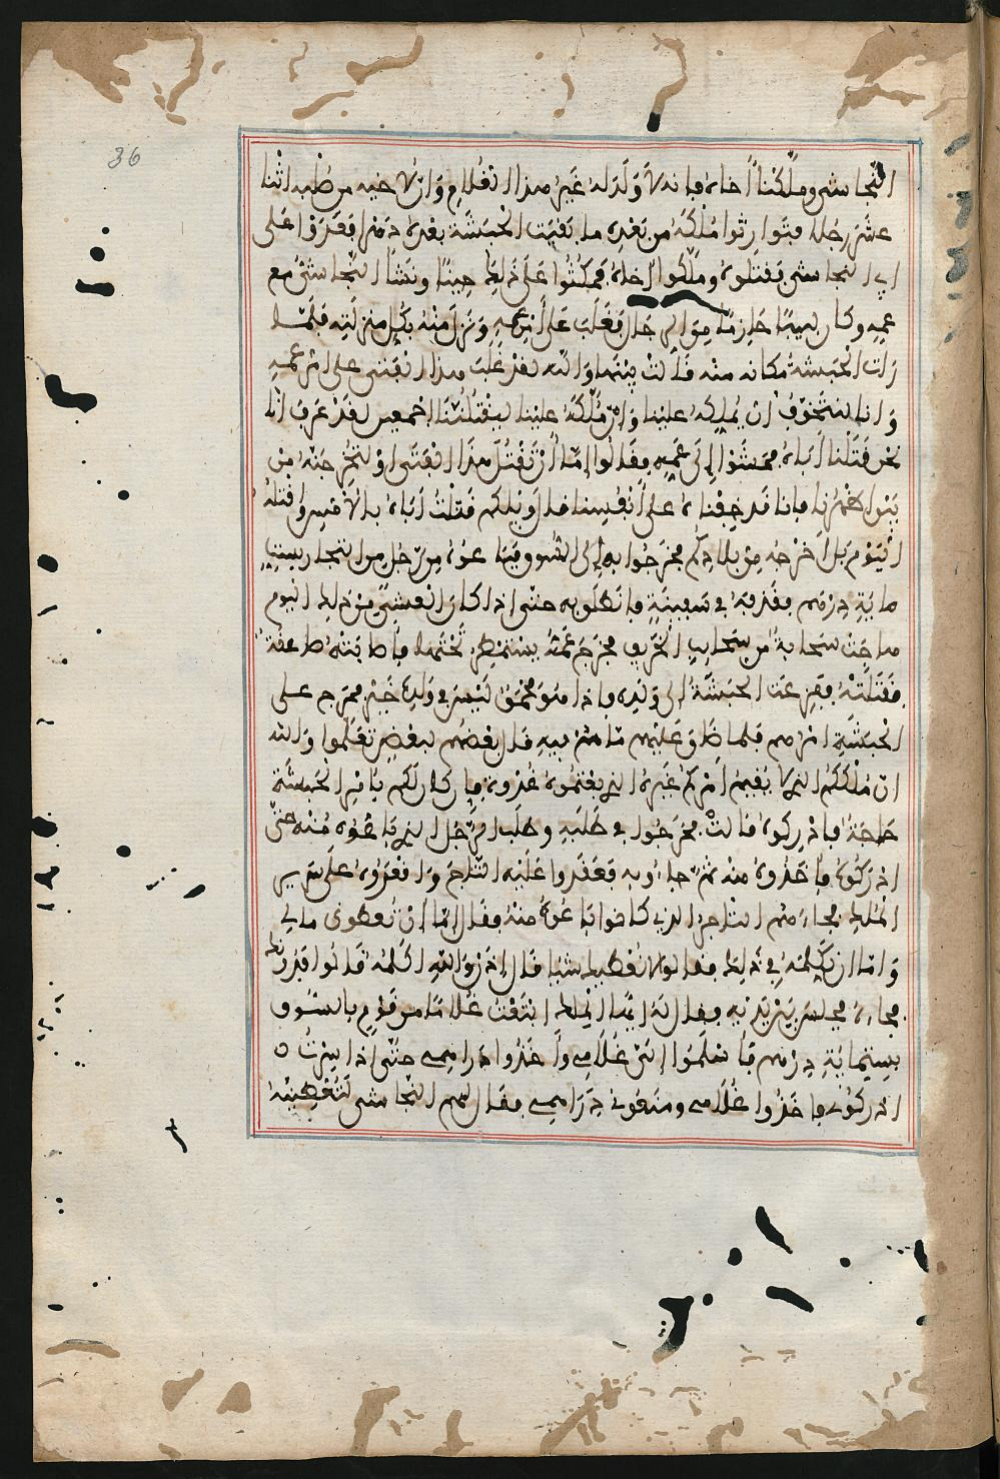 36
النجاشي وملّكنا أخاه فإنه لا ولد له غير هذا الغلام وان لاخيه من صلبه اثنا
عشر رجلا فتوارثوا ملكه من بعده ما بقيت الحبشة بعده دهرا فغدوا على
اب النجاشي فقتلوه وملّكوا أخاه فمكثوا على ذلك حينا ونشأ النجاشي مع
عمه وكان لبيبا حازما من الرجال فغلب على امر عمه ونزل منه بكل منزلة فلما
رات الحبشة مكانه منه قالت بينها والله لقد غلب هذا الفتى على امر عمه
وانا لنتخوف ان يملكه علينا وان ملكه علينا ليقتلنا اجمعين لقد عرف انا
نحن قتلنا أباه فمشوا إلى عمه فقالوا إما أن تقتل هذا الفتى او لتخرجنه من
بين اظهرنا فإنا قد خفناه على أنفسنا قال ويلكم قتلت أباه بالأمس واقتله
اليوم بل أخرجه من بلادكم فخرجوا به إلى السوق فباعوه من رجل من التجار بستـ
مائة درهم فقذفه في سفينة فانطلق به حتى اذا كان العشي من ذلك اليوم
هاجت سحابة من سحايب الخريف فخرج عمه يستمطر تحتها فأصابته صاعقة
فقتلته ففزعت الحبشة إلى ولده فاذا هو محمق ليس في ولده خير فمرج على
الحبشة امرهم فلما ضاق عليهم ما هم فيه قال بعضهم لبعض تعلموا والله
ان ملككم الذي لا يقيم امركم غيره الذي بعتموه غدوة فإن كان لكم بأمر الحبشة
حاجة فادركوه قالت فخرجوا في طلبه وطلب الرجل الذي باعوه منه حتى
ادركوه فأخذوه منه ثم جاءوا به فعقدوا عليه التاج واقعدوه على سرير
الملك فجاءهم التاجر الذي كانوا باعوه منه فقال إما أن تعطوني مالي
واما ان اكلمه في ذلك فقالوا لا نعطيك شيا قال إذن والله اكلمه قالوا فدونك
فجاءه فجلس بين يديه فقال له ايها الملك ابتعت غلاما من قوم بالسوق
بستمائة درهم فأسلموا إلي غلامي وأخذوا دراهمي حتى اذا سرت
ادركوني فاخذوا غلامي ومنعوني دراهمي فقال لهم النجاشي لتعطينه